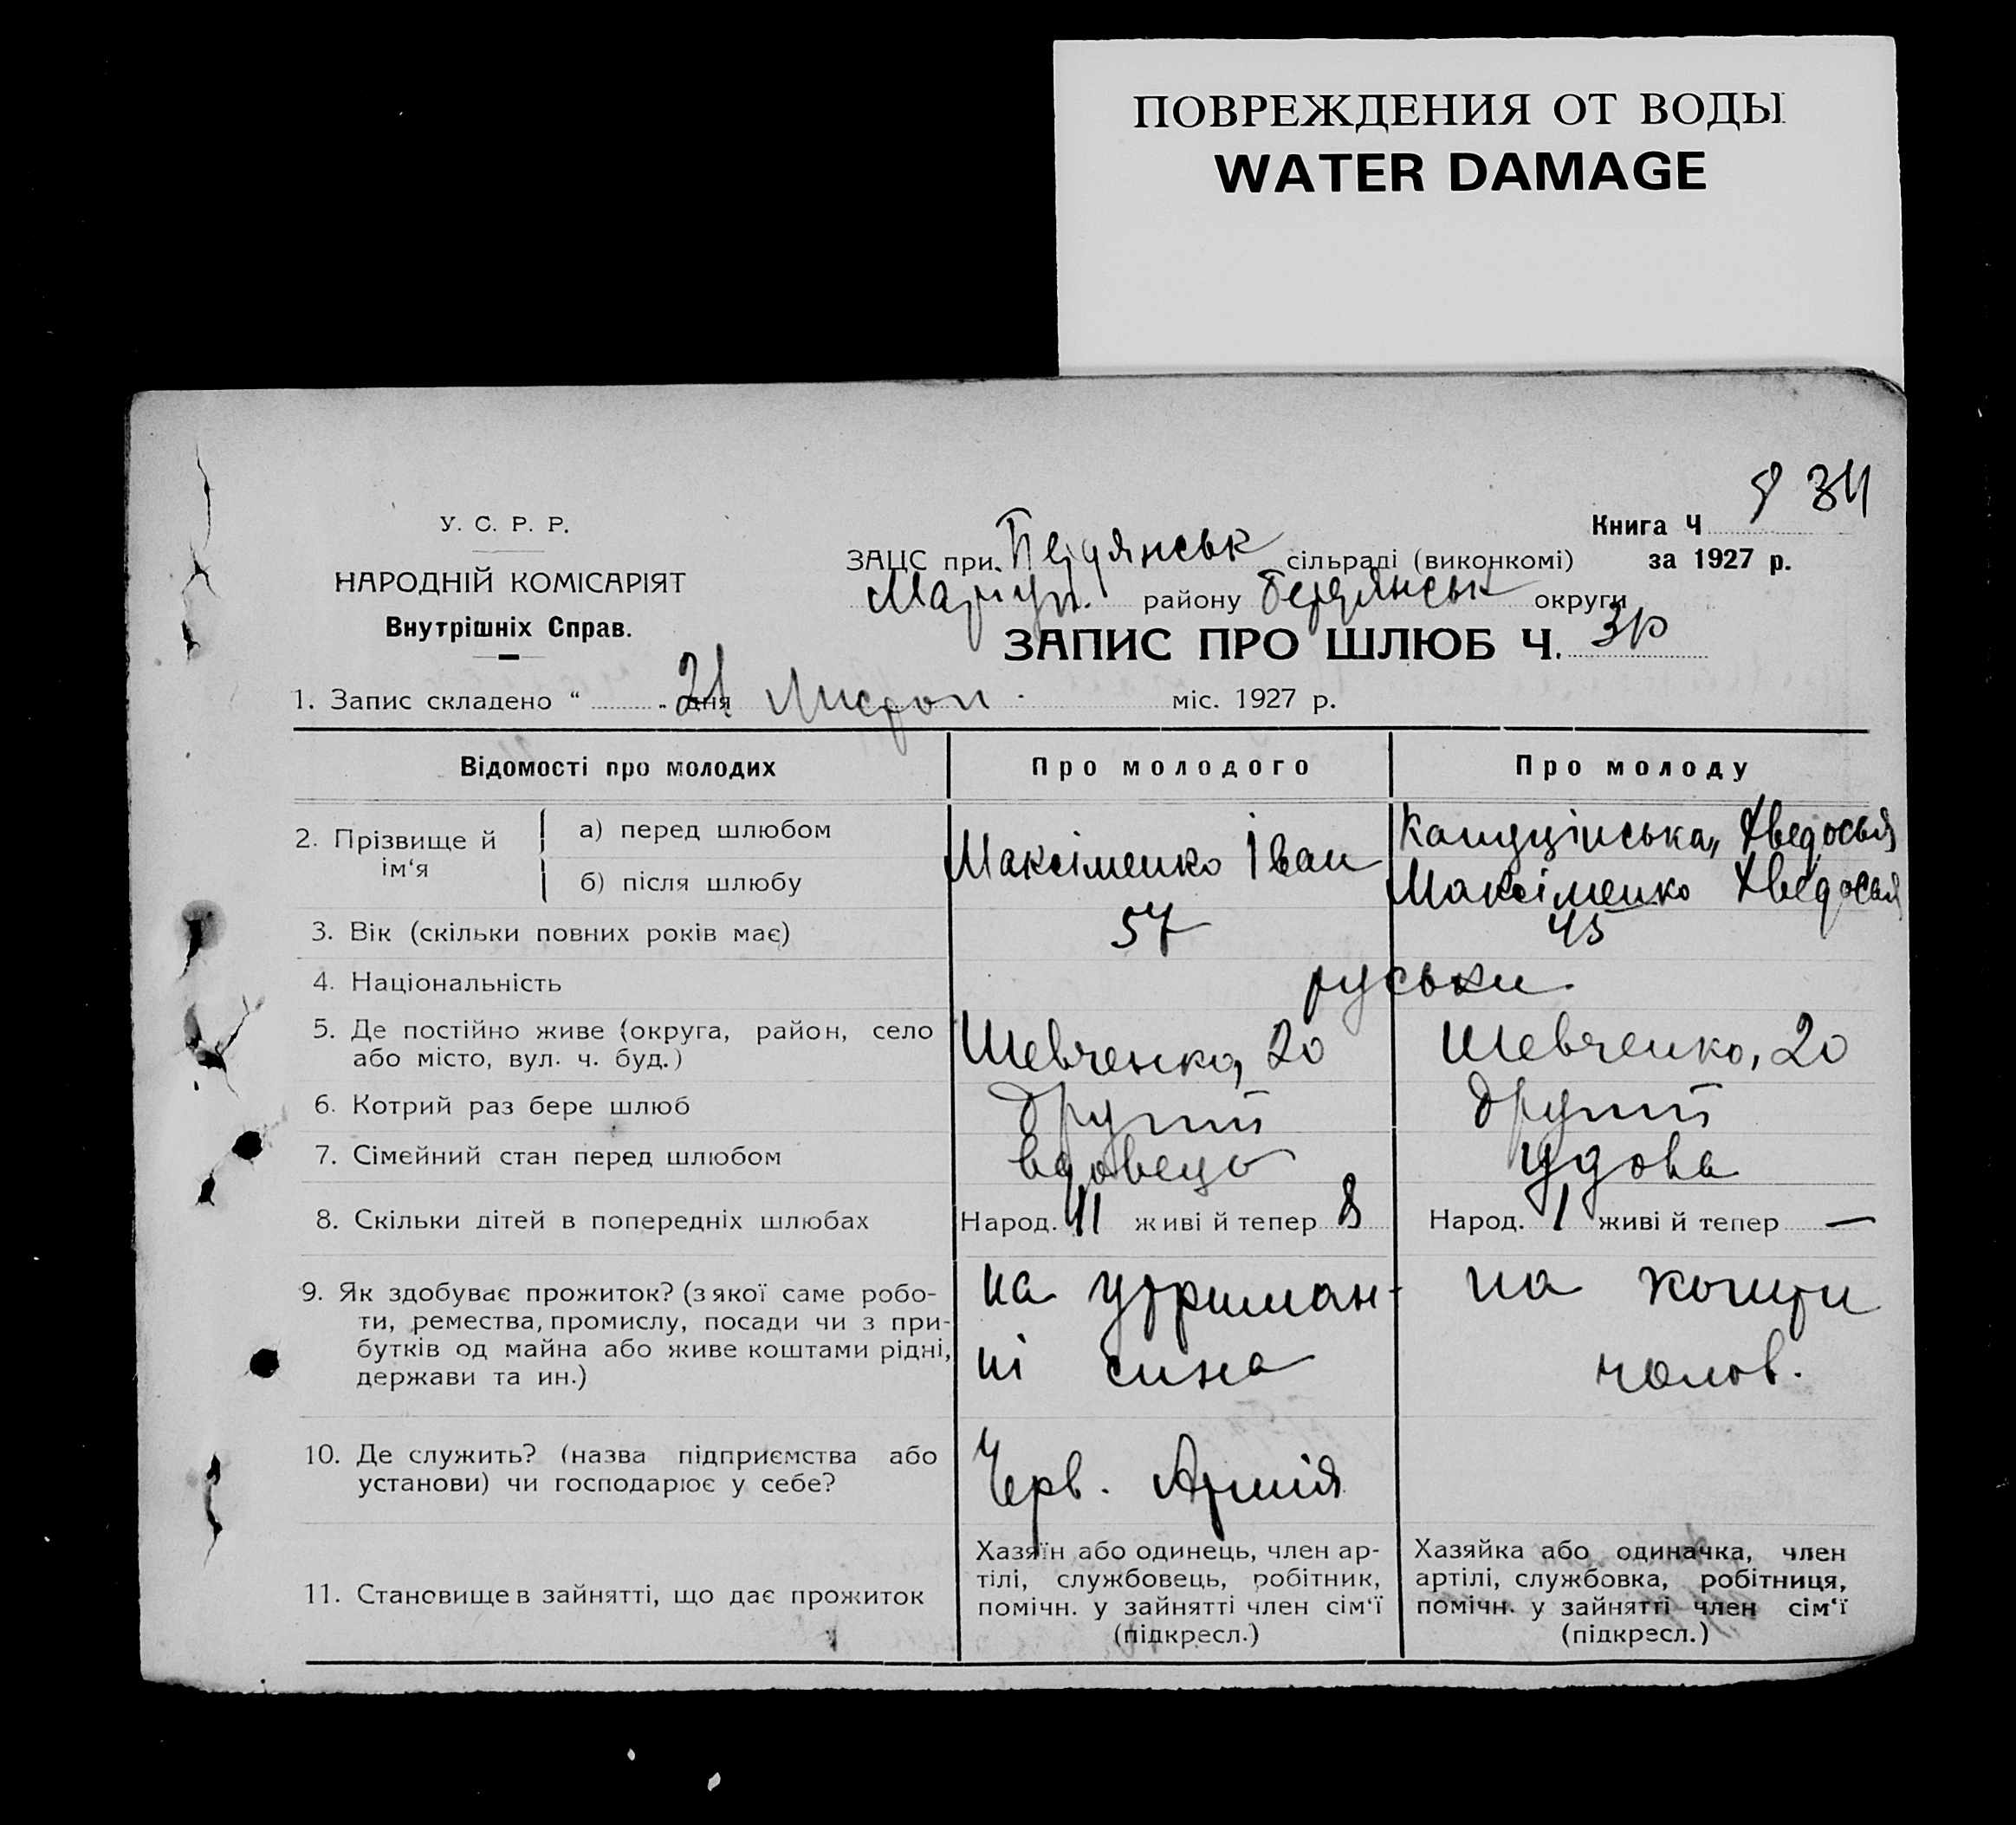 ПОВРЕЖДЕНИЯ ОТ ВОДЫ
WATER DAMAGE
34
У. С. Р. Р.
Книга Ч
ЗАЦС при Бердянськ сільраді (виконкомі) за 1927 р.
НАРОДНІЙ КОМІСАРІЯТ
Маріуп. району Бердянськ округи
Внутрішніх Справ.
ЗАПИС ПРО ШЛЮБ Ч.
1. Запис складено “ 21 дня Листоп. міс. 1927 р.
Відомості про молодих Про молодого Про молоду
2. Прізвище й ім‘я
а) перед шлюбом Максіменко Іван Хведосья
б) після шлюбу Максіменко Хведосья
3. Вік (скільки повних років має) 57 45
4. Національність руськи
5. Де постійно живе (округа, район, село Шевченко, 20 Шевченко, 20
або місто, вул. ч. буд.)
6. Котрий раз бере шлюб другий другий
7. Сімейний стан перед шлюбом вдовець удова
8. Скільки дітей в попередніх шлюбах Народ. 11 живі й тепер 8 Народ. 1 живі й тепер —
9. Як здобуває прожиток? (з якої саме робо- на утриман- на кошти
ти, ремества, промислу, посади чи з при-
бутків од майна або живе коштами рідні, ні сина чолов.
держави та ин.)
10. Де служить? (назва підприємства або Черв. Армія
установи) чи господарює у себе?
11. Становище в зайнятті, що дає прожиток
Хазяїн або одинець, член ар-
тілі, службовець, робітник,
помічн. у зайнятті член сім‘ї
(підкресл.)
Хазяйка або одиначка, член
артілі, службовка, робітниця,
помічн. у зайнятті член сім‘ї
(підкресл.)